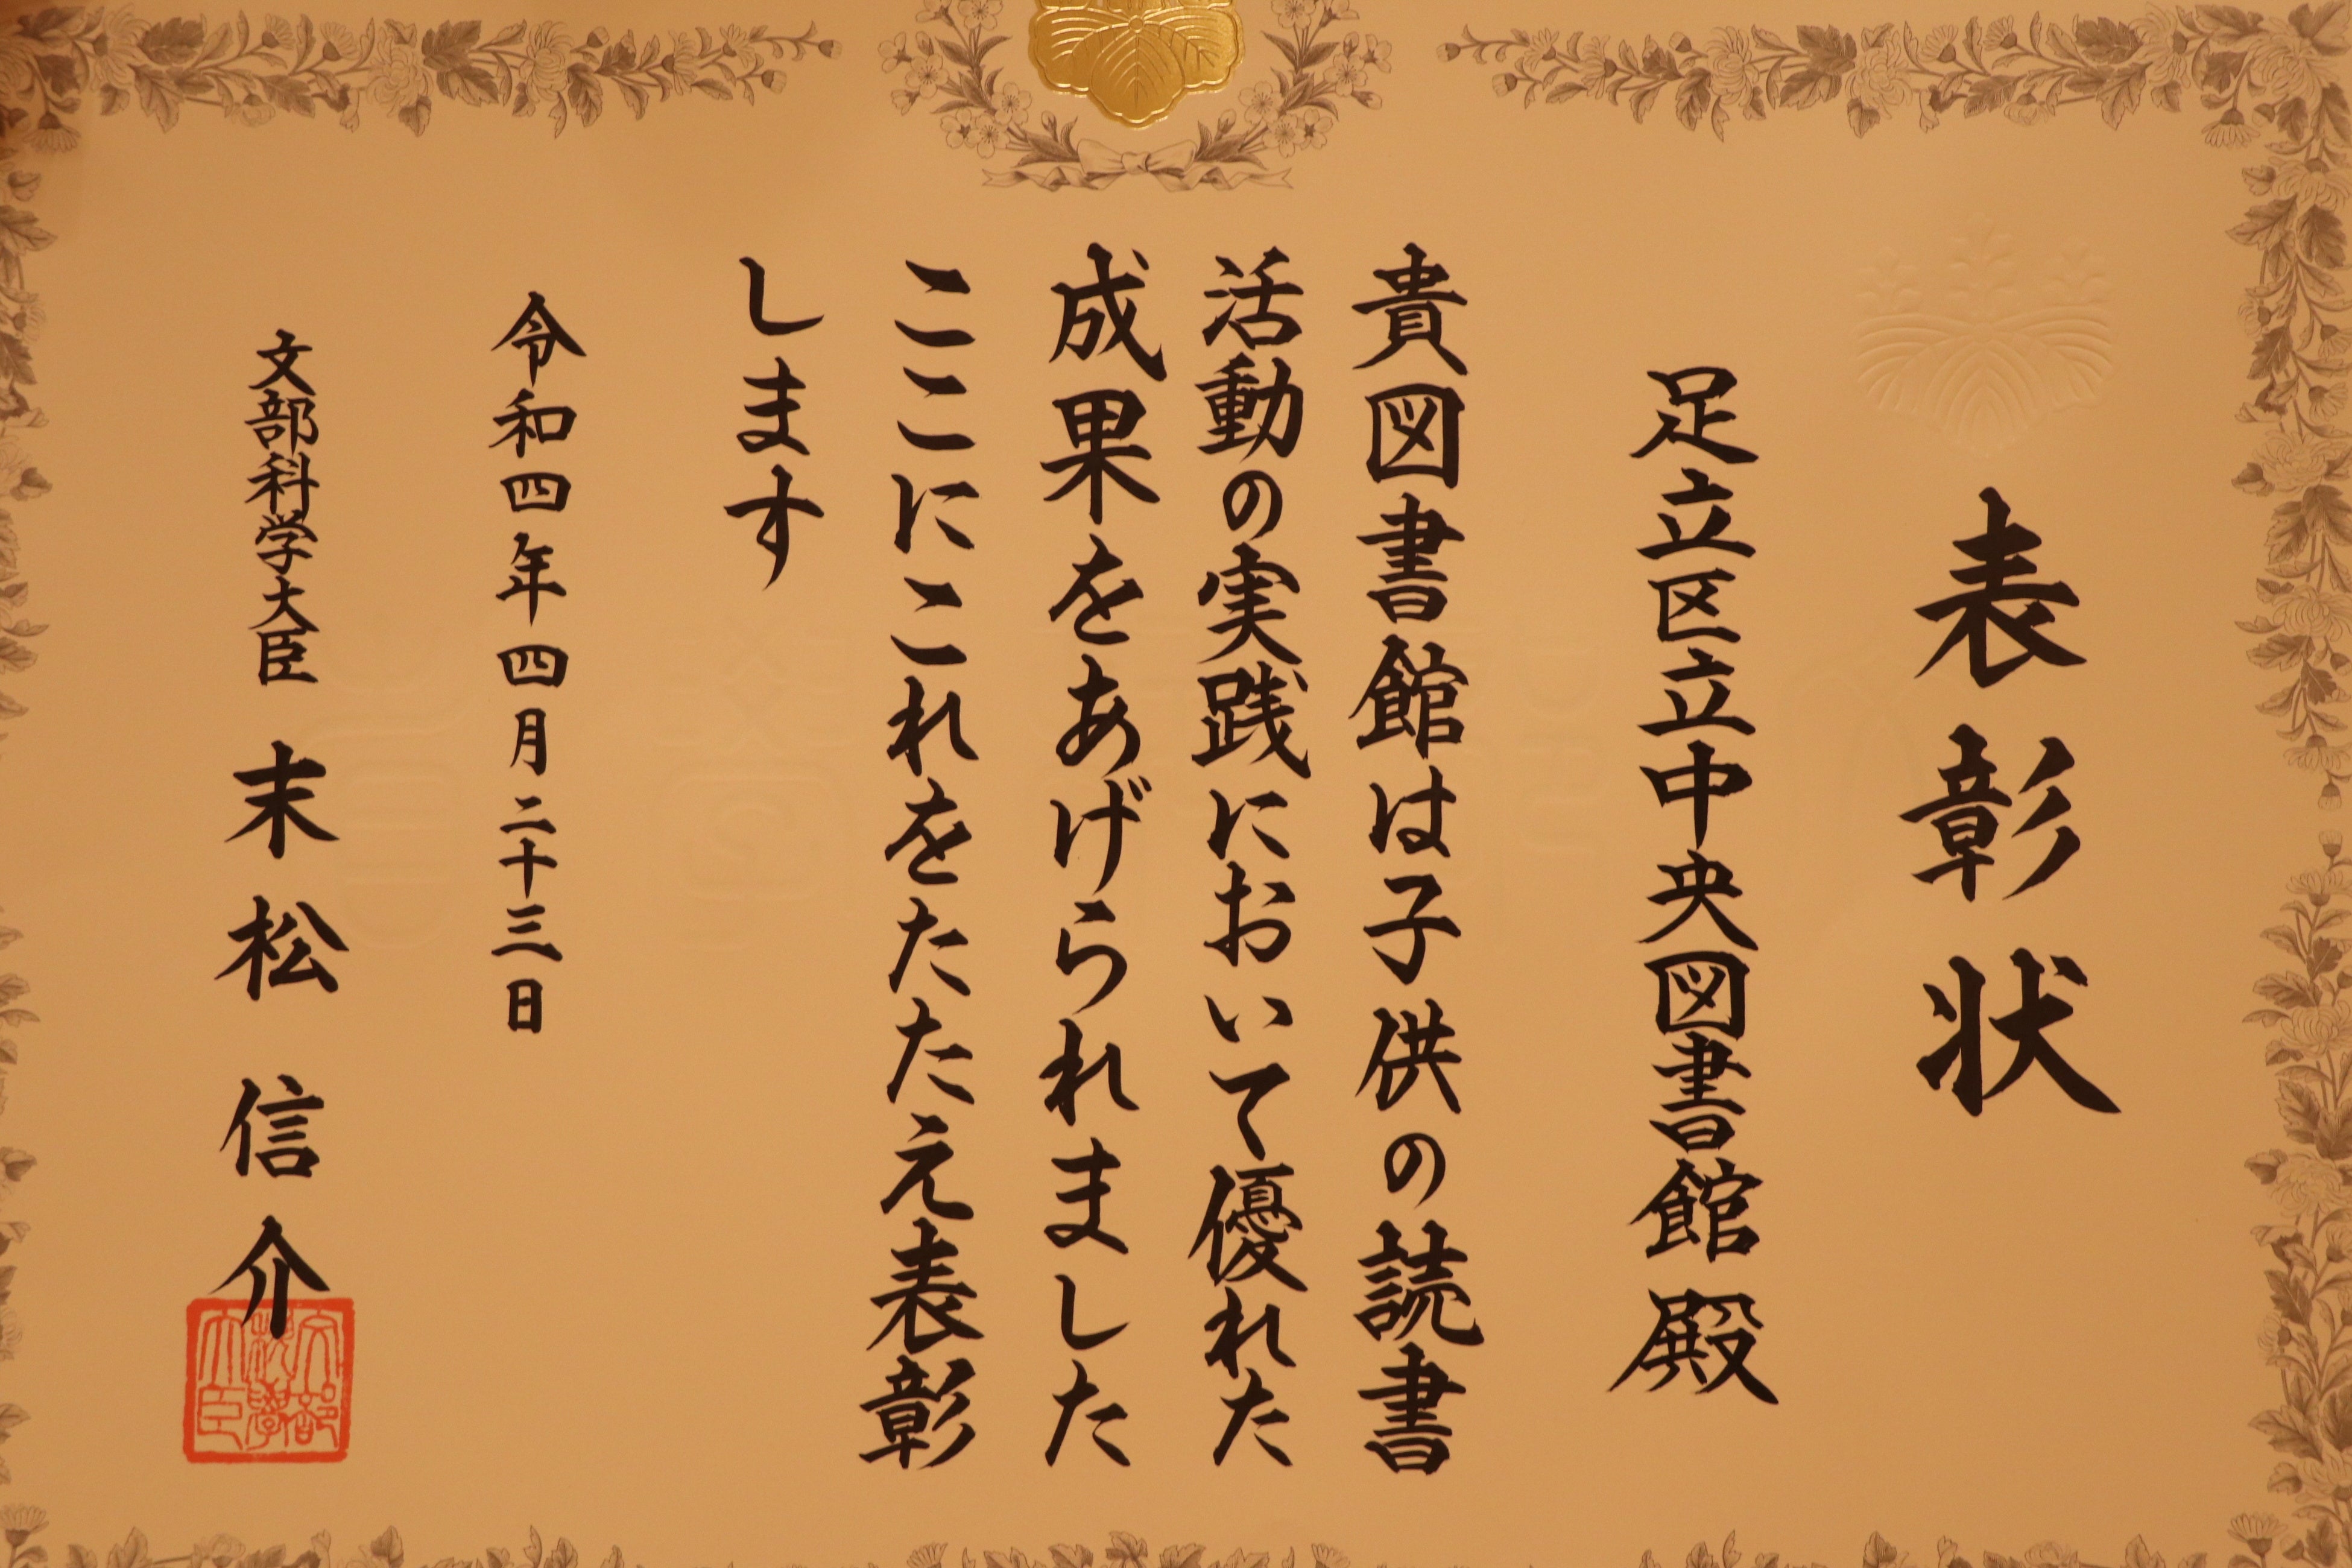 表彰状
足立区立中央図書館 殿
貴図書館は子供の読書
活動の実践において優れた
成果をあげられました
ここにこれをたたえ表彰
します
令和四年四月二十三日
文部科学大臣 末松信介
文部
科學
大臣